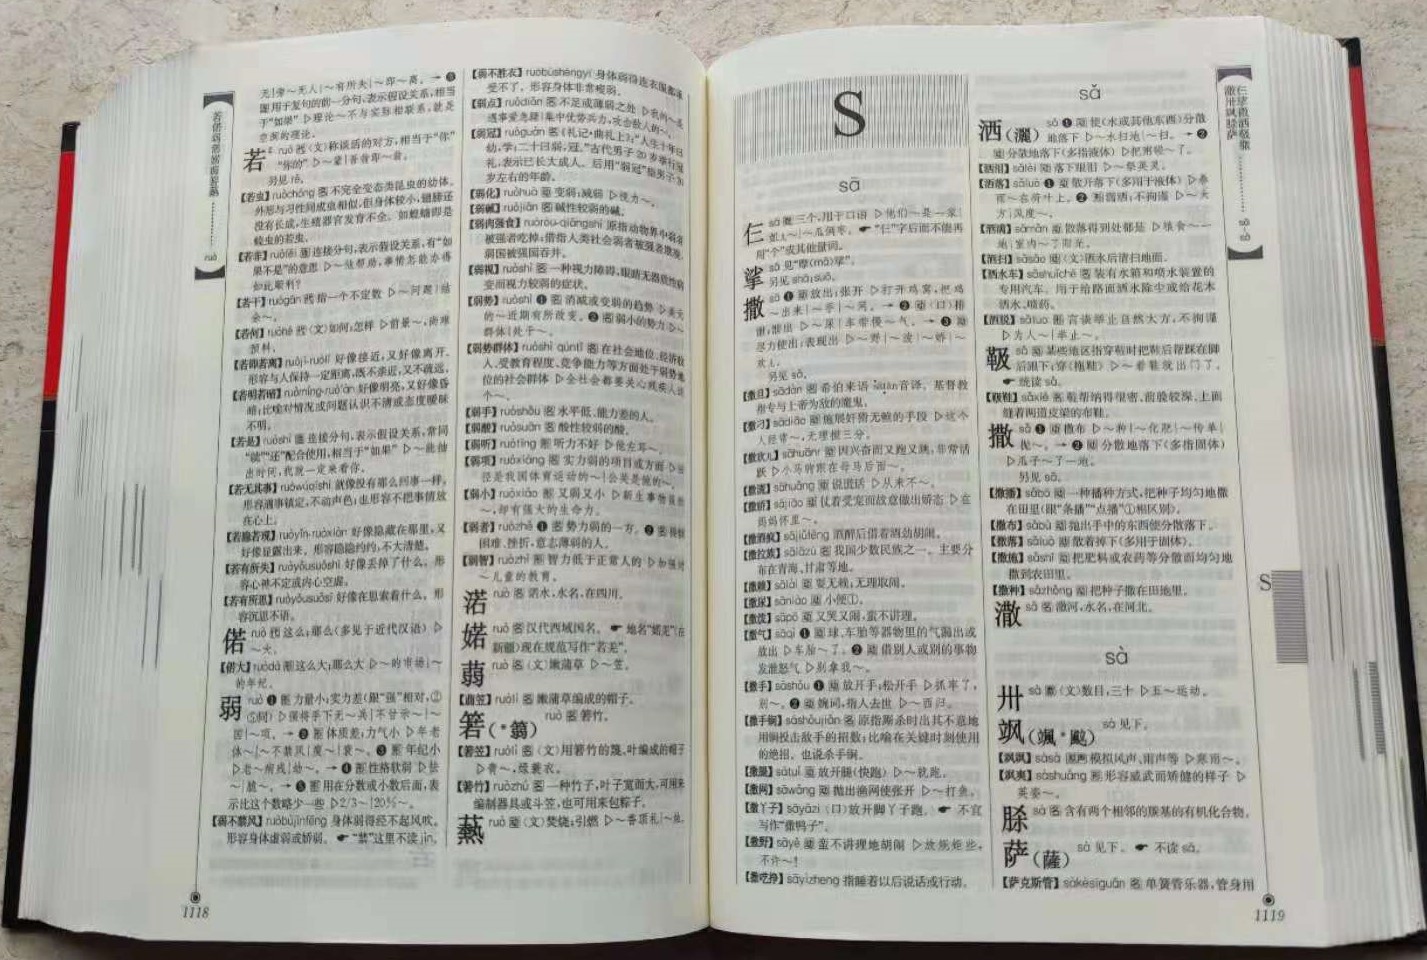 若偌弱鄀婼蒻箬爇
ruò
无|旁~无人|~有所失|~即~离。→❸
圈 用于复句的前一分句,表示假设关系,相当
于"如果" ▷理论~不与实际相联系,就是
空洞的理论。
若 ²ruò 代(文)称谈话的对方,相当于"你"
"你的" ▷~辈|吾翁即~翁。
另见 rě。
【若虫】ruòchóng 名 不完全变态类昆虫的幼体。
外形与习性同成虫相似,但身体较小,翅膀还
没有长成,生殖器官发育不全。如蝗蝻即是
蝗虫的若虫。
【若非】ruòfēi 连 连接分句,表示假设关系,有"如
果不是"的意思 ▷~他帮助,事情怎能办得
如此顺利?
【若干】ruògān 代 指一个不定数 ▷~问题|结
余~。
【若何】ruòhé 代(文)如何;怎样 ▷前景~,尚难
预料。
【若即若离】ruòjí-ruòlí 好像接近,又好像离开。
形容与人保持一定距离,既不亲近,又不疏远。
【若明若暗】ruòmíng-ruò'àn 好像明亮,又好像昏
暗;比喻对情况或问题认识不清或态度暧昧
不明。
【若是】ruòshì 连 连接分句,表示假设关系,常同
"就""还"配合使用,相当于"如果" ▷~能抽
出时间,我就一定来看你。
【若无其事】ruòwúqíshì 就像没有那么回事一样;
形容遇事镇定,不动声色;也形容不把事情放
在心上。
【若隐若现】ruòyǐn-ruòxiàn 好像隐藏在那里,又
好像显露出来。形容隐隐约约,不大清楚。
【若有所失】ruòyǒusuǒshī 好像丢掉了什么。形
容心神不定或内心空虚。
【若有所思】ruòyǒusuǒsī 好像在思索着什么。形
容沉思不语。
偌 ruò 代 这么;那么(多见于近代汉语) ▷
~大。
【偌大】ruòdà 形 这么大;那么大 ▷~的市场|~
的年纪。
弱 ruò ❶形 力量小;实力差(跟"强"相对,②
⑤同) ▷强将手下无~兵|不甘示~|~
国|~项。→❷形 体质差;力气小 ▷年老
体~|~不禁风|虚~|衰~。❸形 年纪小
▷老~病残|幼~。→❹形 性格软弱 ▷怯
~|脆~。→❺形 用在分数或小数后面,表
示比这个数略少一些 ▷2/3~|20%~。
【弱不禁风】ruòbùjīnfēng 身体弱得经不起风吹。
形容身体虚弱或娇弱。☛"禁"这里不读 jìn。
1118
【弱不胜衣】ruòbùshèngyī 身体弱得连衣服都承
受不了。形容身体非常瘦弱。
【弱点】ruòdiǎn 名 不足或薄弱之处
遇事爱急躁|集中优势兵力,攻击敌人的~。
【弱冠】ruòguàn 名《礼记·曲礼上》:"人生十年曰
幼,学;二十曰弱,冠。"古代男子 20 岁举行冠
礼,表示已长大成人。后用"弱冠"指男子 20
岁左右的年龄。
【弱化】ruòhuà 动 变弱;减弱 ▷视力~。
【弱碱】ruòjiǎn 名 碱性较弱的碱。
【弱肉强食】ruòròu-qiángshí 原指动物界中弱者
被强者吃掉;借指人类社会弱者被强者欺凌,
弱国被强国吞并。
【弱视】ruòshì 名 一种视力障碍,眼睛无器质性病
变而视力较弱的症状。
【弱势】ruòshì ❶名 消减或变弱的趋势 ▷美元
的~近期有所改变。❷名 弱小的势力 ▷~
群体|处于~。
【弱势群体】ruòshì qúntǐ 名 在社会地位、经济收
入、受教育程度、竞争能力等方面处于弱势地
位的社会群体 ▷全社会都要关心残疾人这
个~。
【弱手】ruòshǒu 名 水平低、能力差的人。
【弱酸】ruòsuān 名 酸性较弱的酸。
【弱听】ruòtīng 形 听力不好 ▷他左耳~。
【弱项】ruòxiàng 名 实力弱的项目或方面 ▷田
径是我国体育运动的~|公关是他的~。
【弱小】ruòxiǎo 形 又弱又小 ▷新生事物虽然
~,却有强大的生命力。
【弱者】ruòzhě ❶名 势力弱的一方。❷名
困难、挫折,意志薄弱的人。
【弱智】ruòzhì 形 智力低于正常人的 ▷加强对
~儿童的教育。
渃 ruò 名 渃水,水名,在四川。
婼 ruò 名 汉代西域国名。☛ 地名"婼羌"(在
新疆)现在规范写作"若羌"。
蒻 ruò 名(文)嫩蒲草 ▷~笠。
【蒻笠】ruòlì 名 嫩蒲草编成的帽子。
箬(*篛) ruò 名 箬竹。
【箬笠】ruòlì 名(文)用箬竹的篾、叶编成的帽子
▷青~,绿蓑衣。
【箬竹】ruòzhú 名 一种竹子,叶子宽而大,可用来
编制器具或斗笠,也可用来包粽子。
爇 ruò 动(文)焚烧;引燃 ▷~香顶礼|~烛。
S
sā
仨 sā 数量 三个,用于口语 ▷他们~是一家|
~|~瓜俩枣。☛"仨"字后面不能再
用"个"或其他量词。
挲 sā 见"摩(mā)挲"。
另见 shā;suō。
撒 sā ❶动 放出;张开 ▷打开鸡窝,把鸡
~出来|一手|~网。→❷动(口)排
泄;泄出 ▷~尿|车带慢~气。→❸动
尽力使出;表现出 ▷~野|~泼|~娇|~
欢儿。
另见 sǎ。
【撒旦】sādàn 名 希伯来语 音译。基督教
指专与上帝为敌的魔鬼。
【撒刁】sādiāo 动 施展奸猾无赖的手段 ▷这个
人经常~,无理搅三分。
【撒欢儿】sāhuānr 动 因兴奋而又跑又跳,非常活
跃 ▷小马驹跟在母马后面~。
【撒谎】sāhuǎng 动 说谎话 ▷从来不~。
【撒娇】sājiāo 动 仗着受宠而故意做出娇态 ▷在
妈妈怀里~。
【撒酒疯】sājiǔfēng 酒醉后借着酒劲胡闹。
【撒拉族】sālāzú 名 我国少数民族之一。主要分
布在青海、甘肃等地。
【撒赖】sālài 动 耍无赖;无理取闹。
【撒尿】sāniào 动 小便①。
【撒泼】sāpō 动 又哭又闹,蛮不讲理。
【撒气】sāqì ❶动 球、车胎等器物里的气漏出或
放出 ▷车胎~了。❷动 借别人或别的事物
发泄怒气 ▷别拿我~。
【撒手】sāshǒu ❶动 放开手;松开手 ▷抓牢了,
别~。❷动 婉词,指人去世 ▷~西归。
【撒手锏】sāshǒujiǎn 名 原指厮杀时出其不意地
用锏投击敌手的招数;比喻在关键时刻使用
的绝招。也说杀手锏。
【撒腿】sātuǐ 动 放开腿(快跑) ▷~就跑。
【撒网】sāwǎng 动 抛出渔网使张开 ▷~打鱼。
【撒丫子】sāyāzi〈口〉放开脚丫子跑。☛ 不宜
写作"撒鸭子"。
【撒野】sāyě 动 蛮不讲理地胡闹 ▷放规矩些,
不许~!
【撒呓挣】sāyìzheng 指睡着以后说话或行动。
sǎ
洒(灑) sǎ ❶动 使(水或其他东西)分散
地落下 ▷~水扫地|~扫。→❷
动 分散地落下(多指液体) ▷把粥碰~了。
【洒泪】sǎlèi 动 落下眼泪 ▷~祭英灵。
【洒落】sǎluò ❶动 散开落下(多用于液体) ▷春
雨~在荷叶上。❷形 潇洒;不拘谨 ▷~大
方|风度~。
【洒满】sǎmǎn 动 散落得到处都是 ▷粮食~一
地|室内~了阳光。
【洒扫】sǎsǎo 动(文)洒水后清扫地面。
【洒水车】sǎshuǐchē 名 装有水箱和喷水装置的
专用汽车。用于给路面洒水除尘或给花木
洒水、喷药。
【洒脱】sǎtuo 形 言谈举止自然大方,不拘谨
▷为人~|举止~。
靸 sǎ 动 某些地区指穿鞋时把鞋后帮踩在脚
后跟下;穿(拖鞋) ▷~着鞋就出门了。
☛ 统读 sǎ。
【靸鞋】sǎxié 名 鞋帮纳得很密,前脸较深,上面
缝着两道皮梁的布鞋。
撒 sǎ ❶动 撒布 ▷~种|~化肥|~传单|
抛~。→❷动 分散地落下(多指固体)
▷瓜子~了一地。
另见 sā。
【撒播】sǎbō 动 一种播种方式,把种子均匀地撒
在田里(跟"条播""点播"①相区别)。
【撒布】sǎbù 动 抛出手中的东西使分散落下。
【撒落】sǎluò 动 散着掉下(多用于固体)。
【撒施】sǎshī 动 把肥料或农药等分散而均匀地
撒到农田里。
【撒种】sǎzhǒng 动 把种子撒在田地里。
潵 sǎ 名 潵河,水名,在河北。
sà
卅 sà 数(文)数目,三十 ▷五~运动。
飒(颯*䬃) sà 见下。
【飒飒】sàsà 拟声 模拟风声、雨声等 ▷寒雨~。
【飒爽】sàshuǎng 形 形容威武而矫健的样子 ▷
英姿~。
脎 sà 名 含有两个相邻的羰基的有机化合物,
萨(薩) sà 见下。☛ 不读 sā。
【萨克斯管】sàkèsīguǎn 名 单簧管乐器,管身用
仨挲撒洒靸撒
潵卅飒脎萨
sā-sà
S
1119